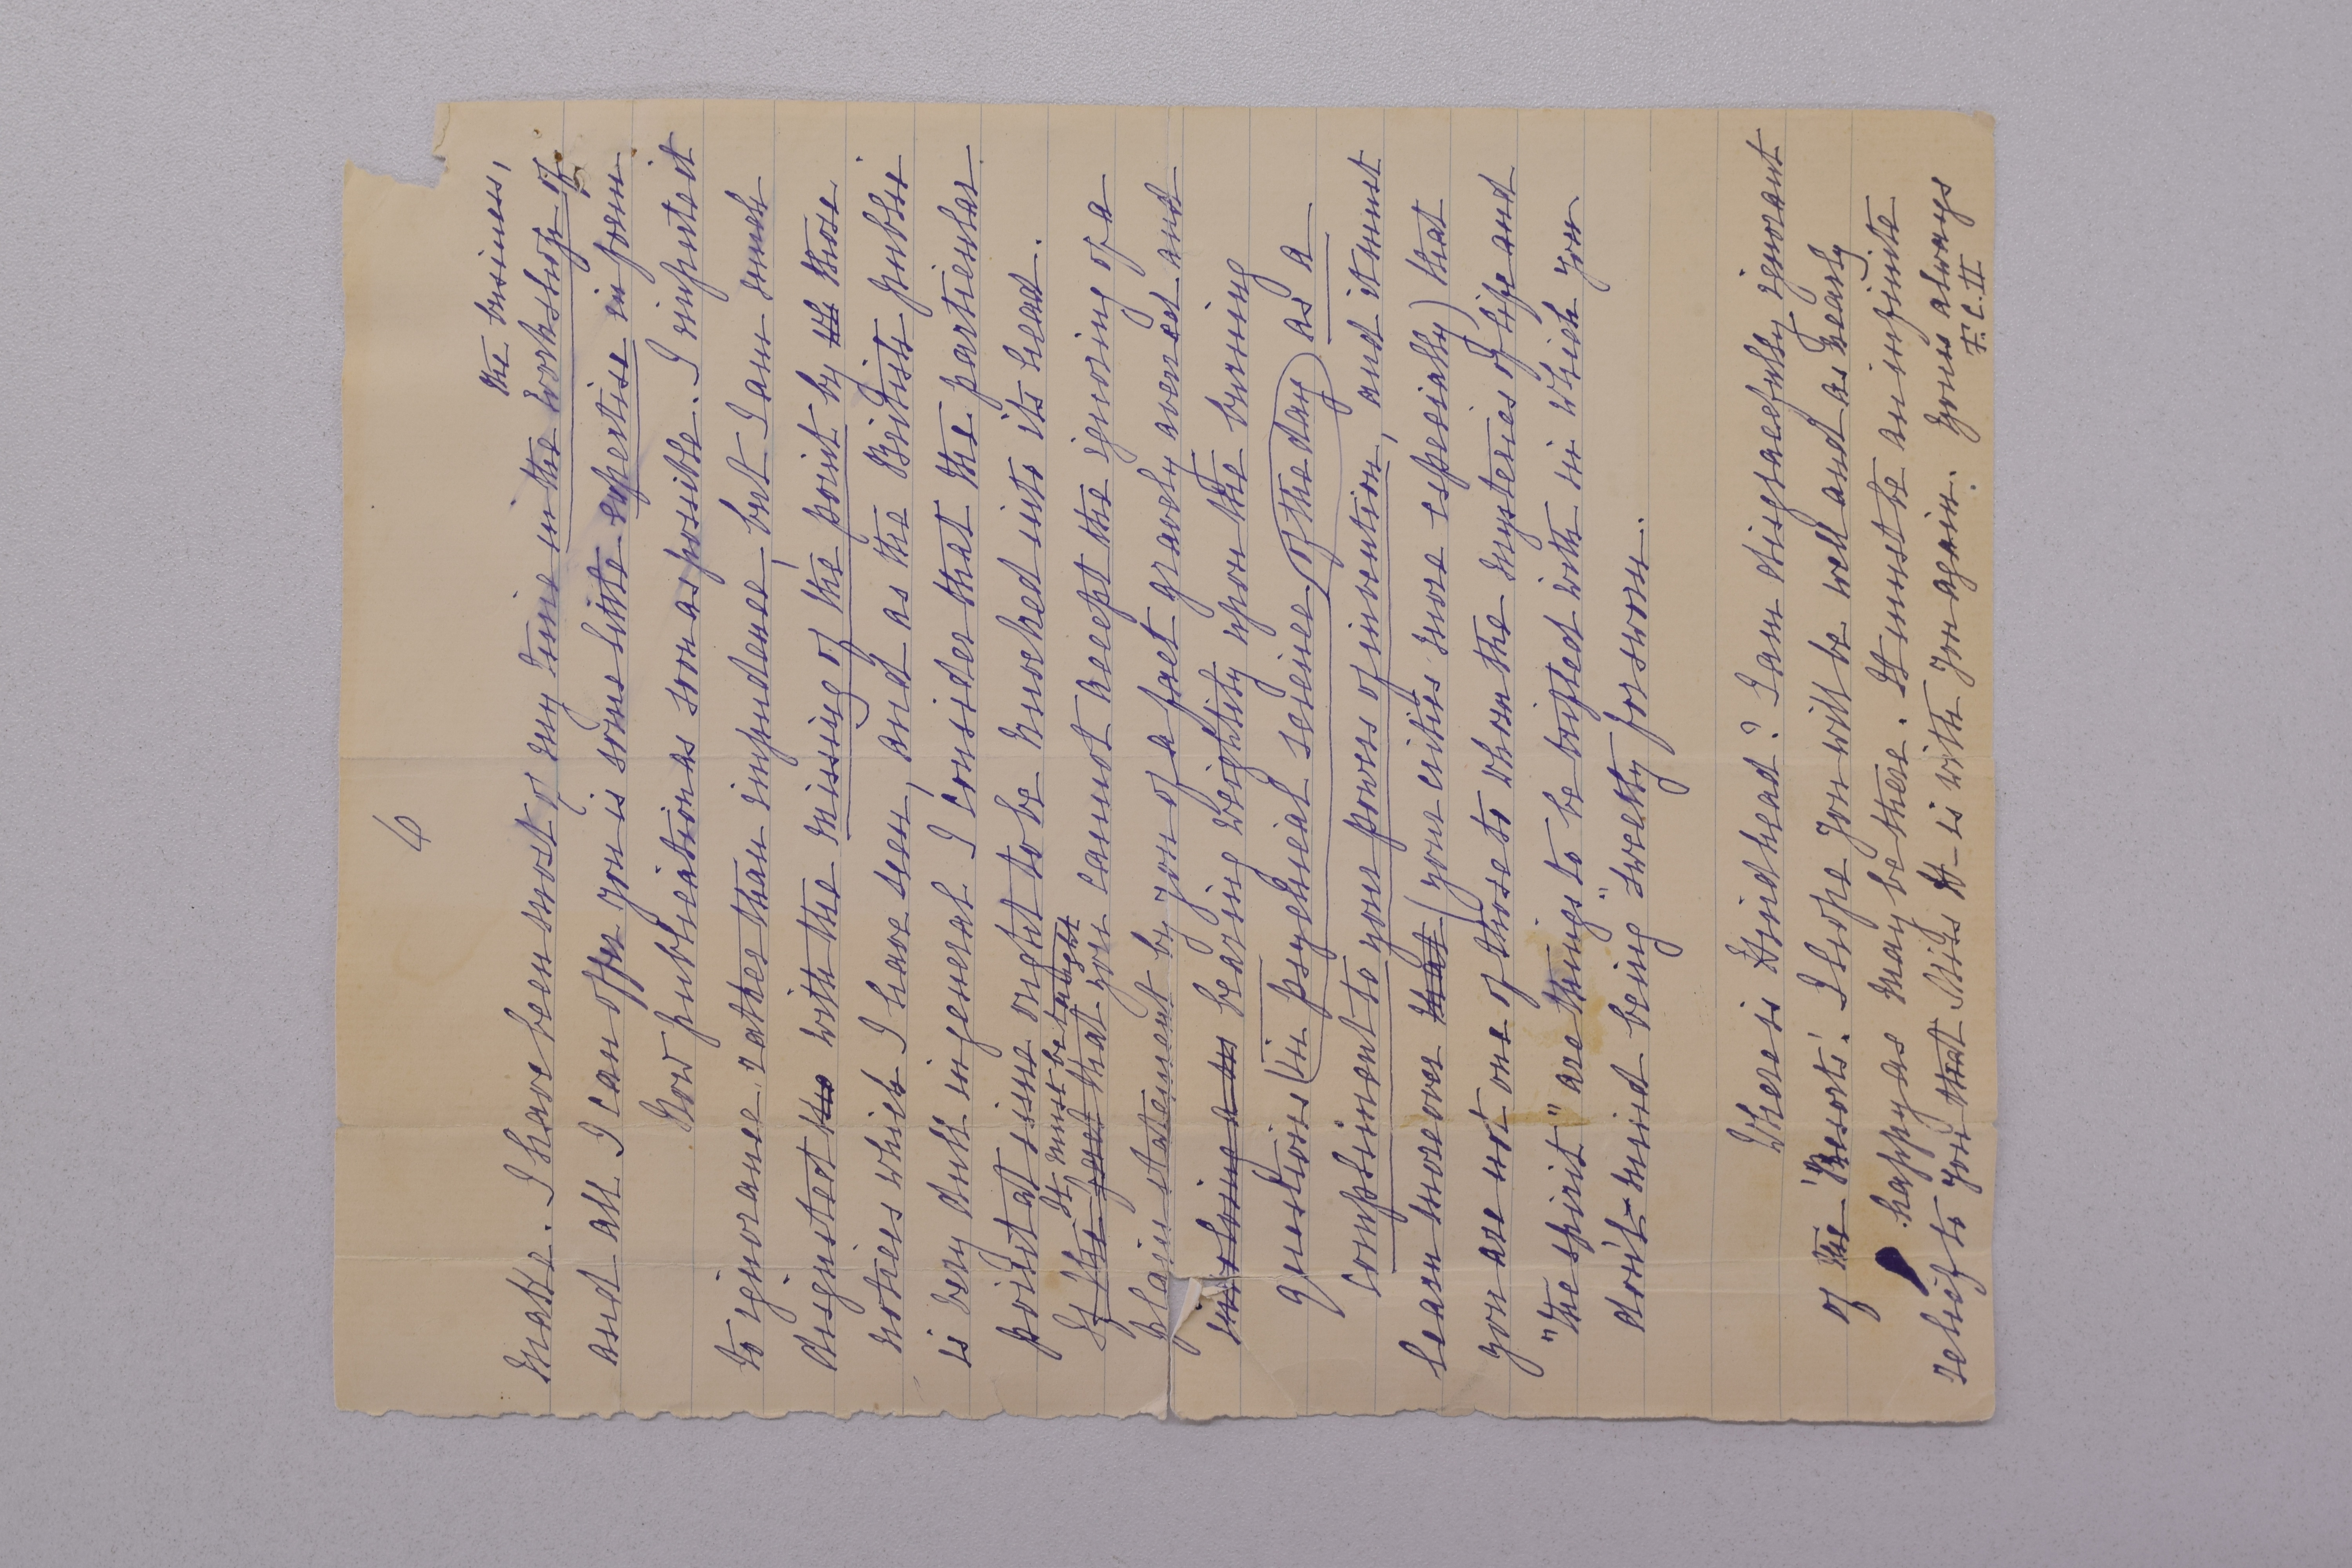 6
the business,
matter. I have been most of my time in the workshop of
and all I can offer you is some little expertise in form
How publications soon as possible. I imputed it
to ignorance rather than impudence, but I am much
disgusted to with the missing of the point by th those
notices which I have seen, and as the British public
is very dull in general I consider that the particular
point at issue ought to be knocked into its head.
It must be taught
If the fact that you cannot accept the ignoring of a
plain statement by you of a fact gravely averred and
bearing weightily upon the burning
questions (in psychical science, of the day) as a
compliment to your powers of invention, and it must
learn moreover that (your critics more especially) that
you are not one of those to whom the mysteries of life and
"the spirit" are things to be trifled with in which you
don't mind being "sweetly forsworn.
Where is Hindhead? I am disgracefully ignorant
of the 'Resorts'. I hope you will be well and as nearly
happy as may be there. It must be an infinite
relief to you that Miss H- is with you again. Yours always
F. C. II